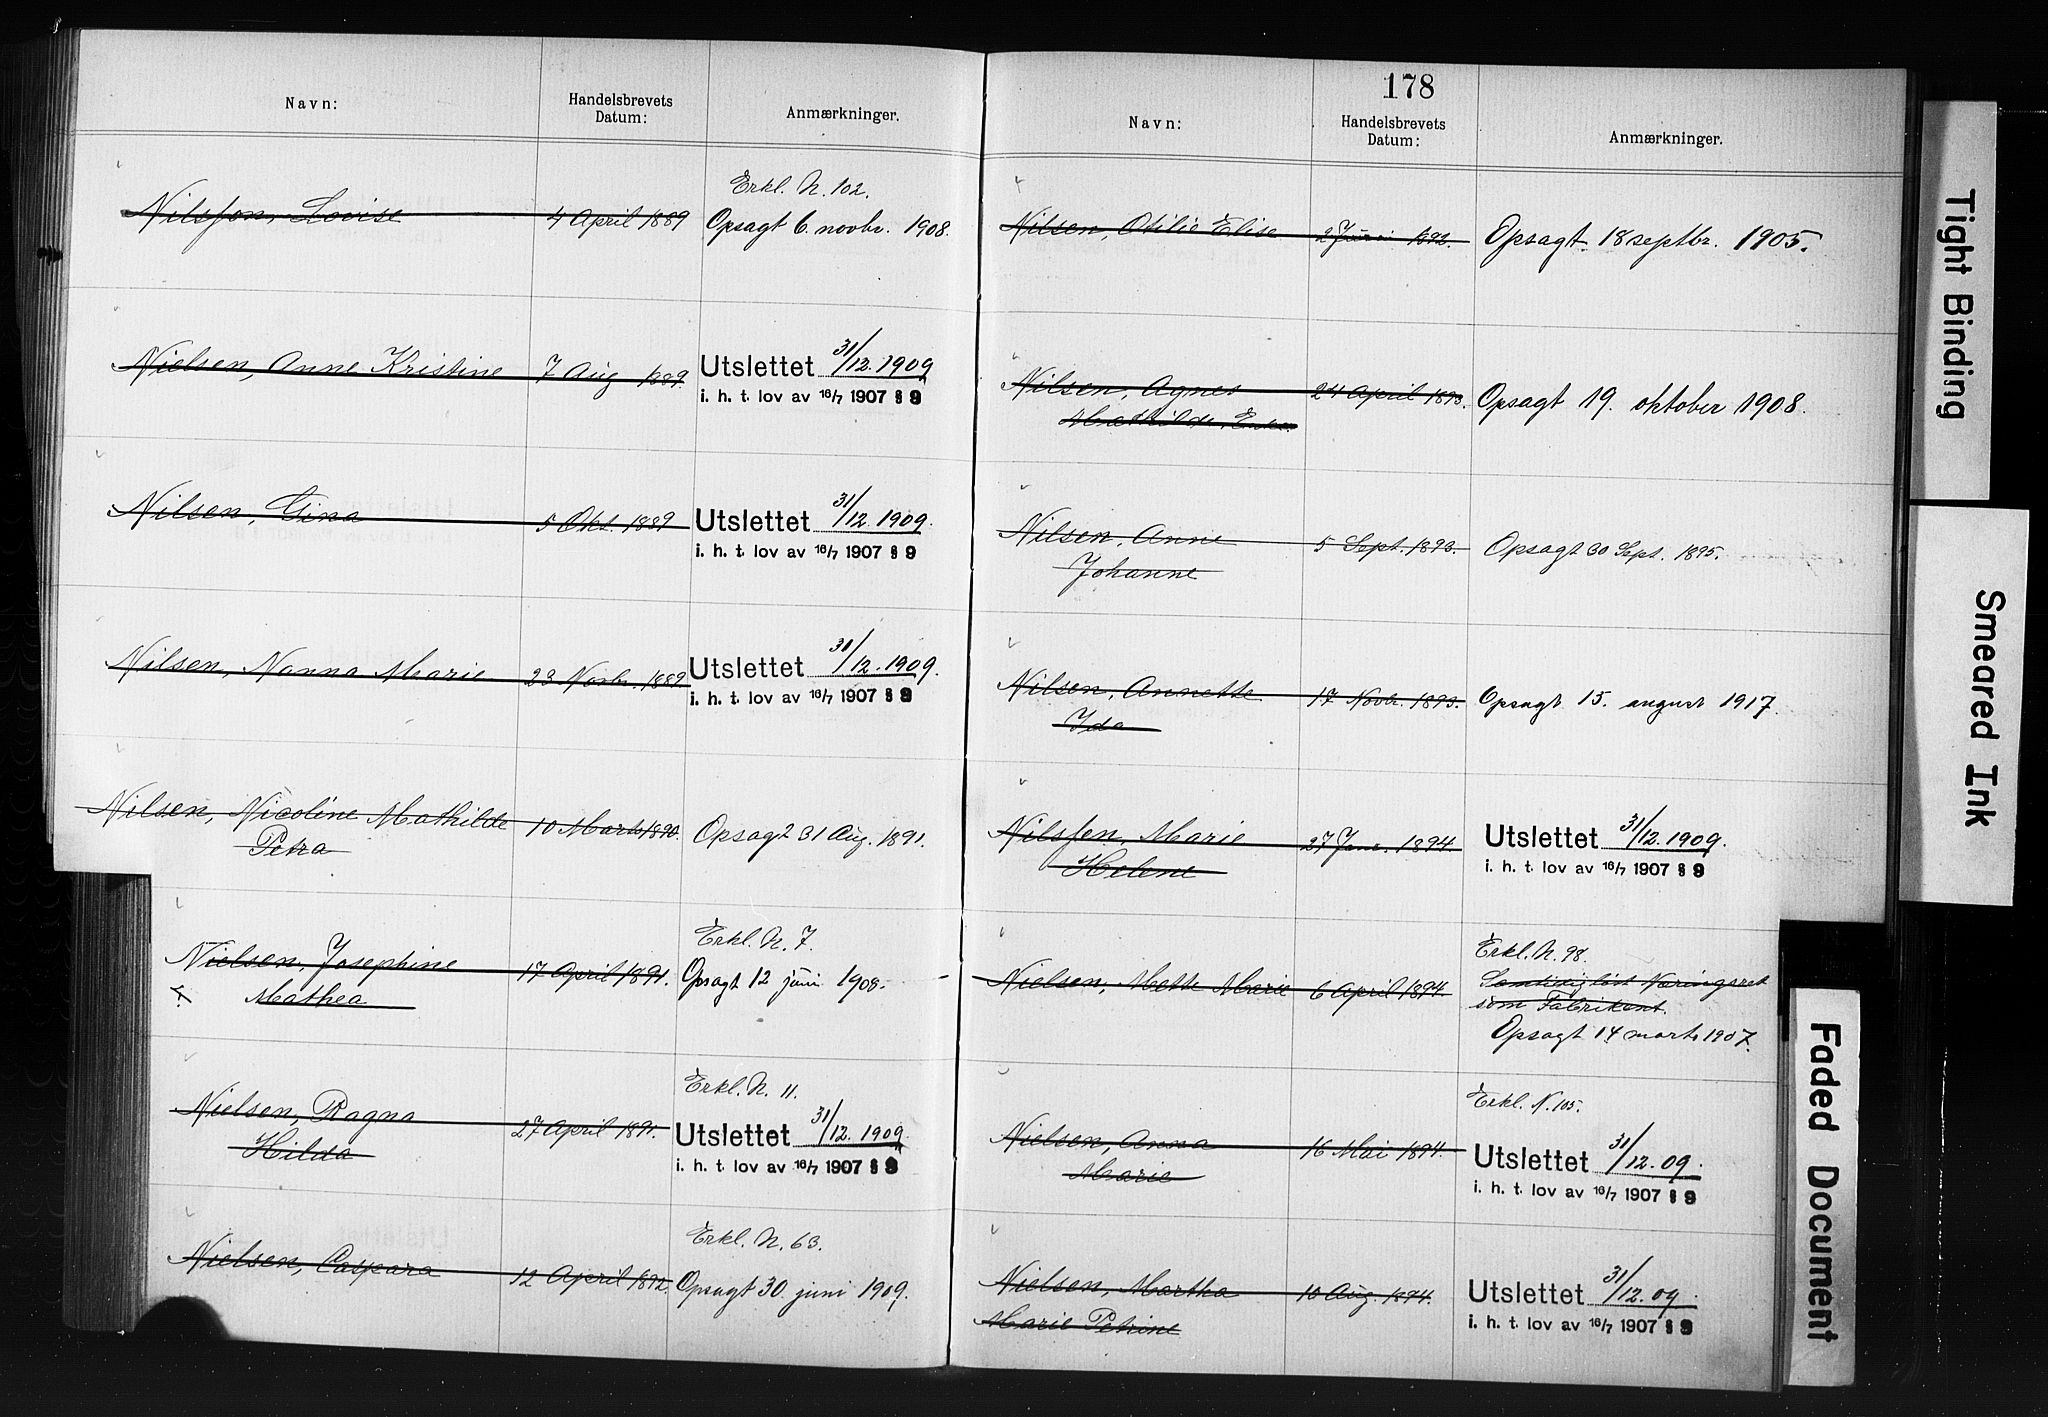 Navn:
Handelsbrevets
Datum:
Anmærkninger.
Nilsson, Lovise
4 April 1889
Erkl. N. 102.
Opsagt 6. novbr. 1908.
Nielsen, Anne Kristine
7 Aug 1889.
Utslettet 31/12. 1909
i. h. t. lov av 16/7 1907 § 9
Nilsen, Gina
5 Okt. 1889
Utslettet 31/12. 1909.
i. h. t. lov av 16/7 1907 § 9
Nilsen, Nanna Marie
23 Novbr. 1889
Utslettet 31/12. 1909.
i. h. t. lov av 16/7 1907 § 9
Nilsen, Nicoline Mathilde
Petra
10 Marts 1890.
Opsagt 31 Aug. 1891.
Nielsen, Josephine
Mathea
17 April 1891.
Erkl. N. 7.
Opsagt 12 juni 1908.
Nielsen, Ragna
Hilda
27 April 1891.
Erkl. N. 11.
Utslettet 31/12. 1909.
i. h. t. lov av 16/7 1907 § 9
Nielsen, Caspara
12 April 1892.
Erkl. N. 63.
Opsagt 30. juni 1909.
178
Navn:
Handelsbrevets
Datum:
Anmærkninger.
Nilsen, Otilie Elise
2 Juni
Opsagt 18 septbr. 1905.
Nilsen, Agnes
Mathilde, Enke.
24 April 1893.
Opsagt 19. oktober 1908.
Nilsen, Anne
Johanne
5 Sept. 1893.
Opsagt 30 Sept. 1895.
Nilsen, Annette
Ida
17 Novbr. 1893.
Opsagt 15. august 1917.
Nilssen, Marie
Helene
27 Janr. 1894.
Utslettet 31/12. 1909.
i. h. t. lov av 16/7 1907 § 9
Nielsen, Mette Marie
6 April 1894.
Erkl. N. 98.
Samtidig löst Næringsret
som Fabrikant.
Opsagt 14 marts 1907.
Nielsen, Anna
Marie
16 Mai 1894.
Erkl. N. 105.
Utslettet 31/12. 09.
i. h. t. lov av 16/7 1907 § 9
Nielsen, Martha
Marie Petrine
10 Aug. 1894.
Utslettet 31/12. 09.
i. h. t. lov av 16/7 1907 § 9
Tight Binding
Smeared Ink
Faded Document